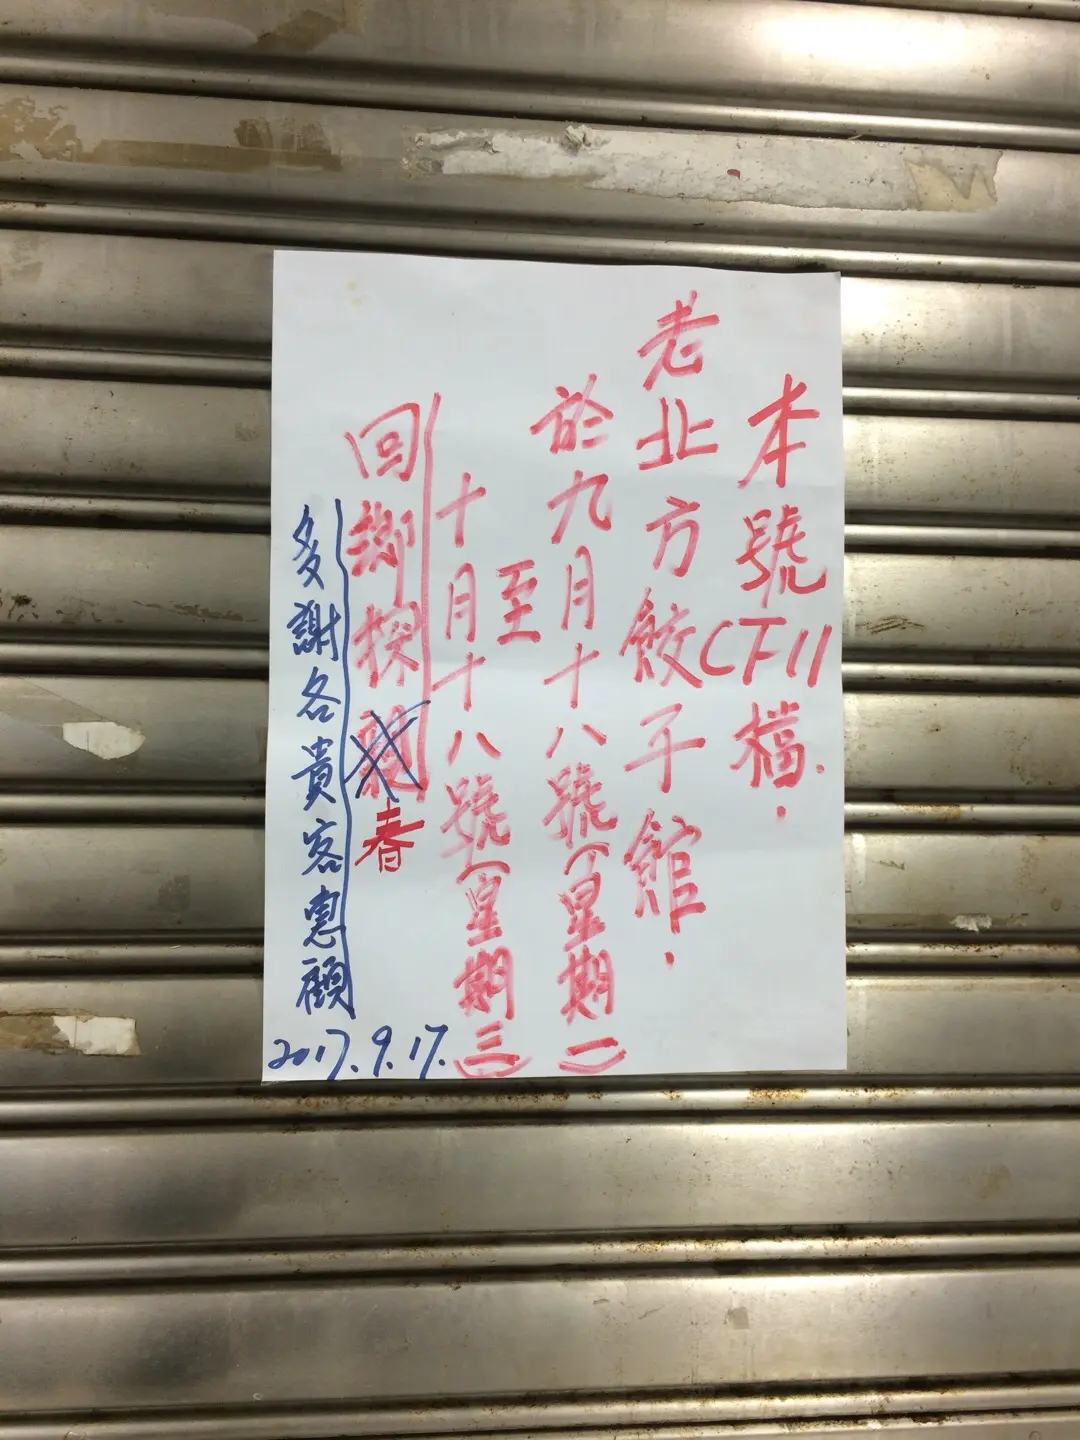 本號CF11檔.
老北方餃子館.
於九月十八號(星期一)
至
十月十八號(星期三)
回鄉探春
多謝各貴客惠顧
2017.9.17.